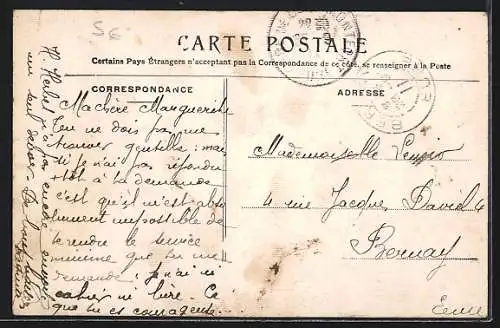 56
CARTE POSTALE
Certains Pays Étrangers n'acceptant pas la Correspondance de ce côté, se renseigner à la Poste
CORRESPONDANCE
Ma chère Marguerite
Tu ne dois pas me
trouver gentille; mais
si je n'ai pas répondu
+ tôt à ta demande
c'est qu'il m'est abso
lument impossible de
te rendre le service
minime que tu me
demande; je n'ai ni
cahier ni livre. Ce
que tu es courageuse...
ADRESSE
Mademoiselle
4 rue Jacques David 4
Bernay
Eure
n'a pas encore
un seul